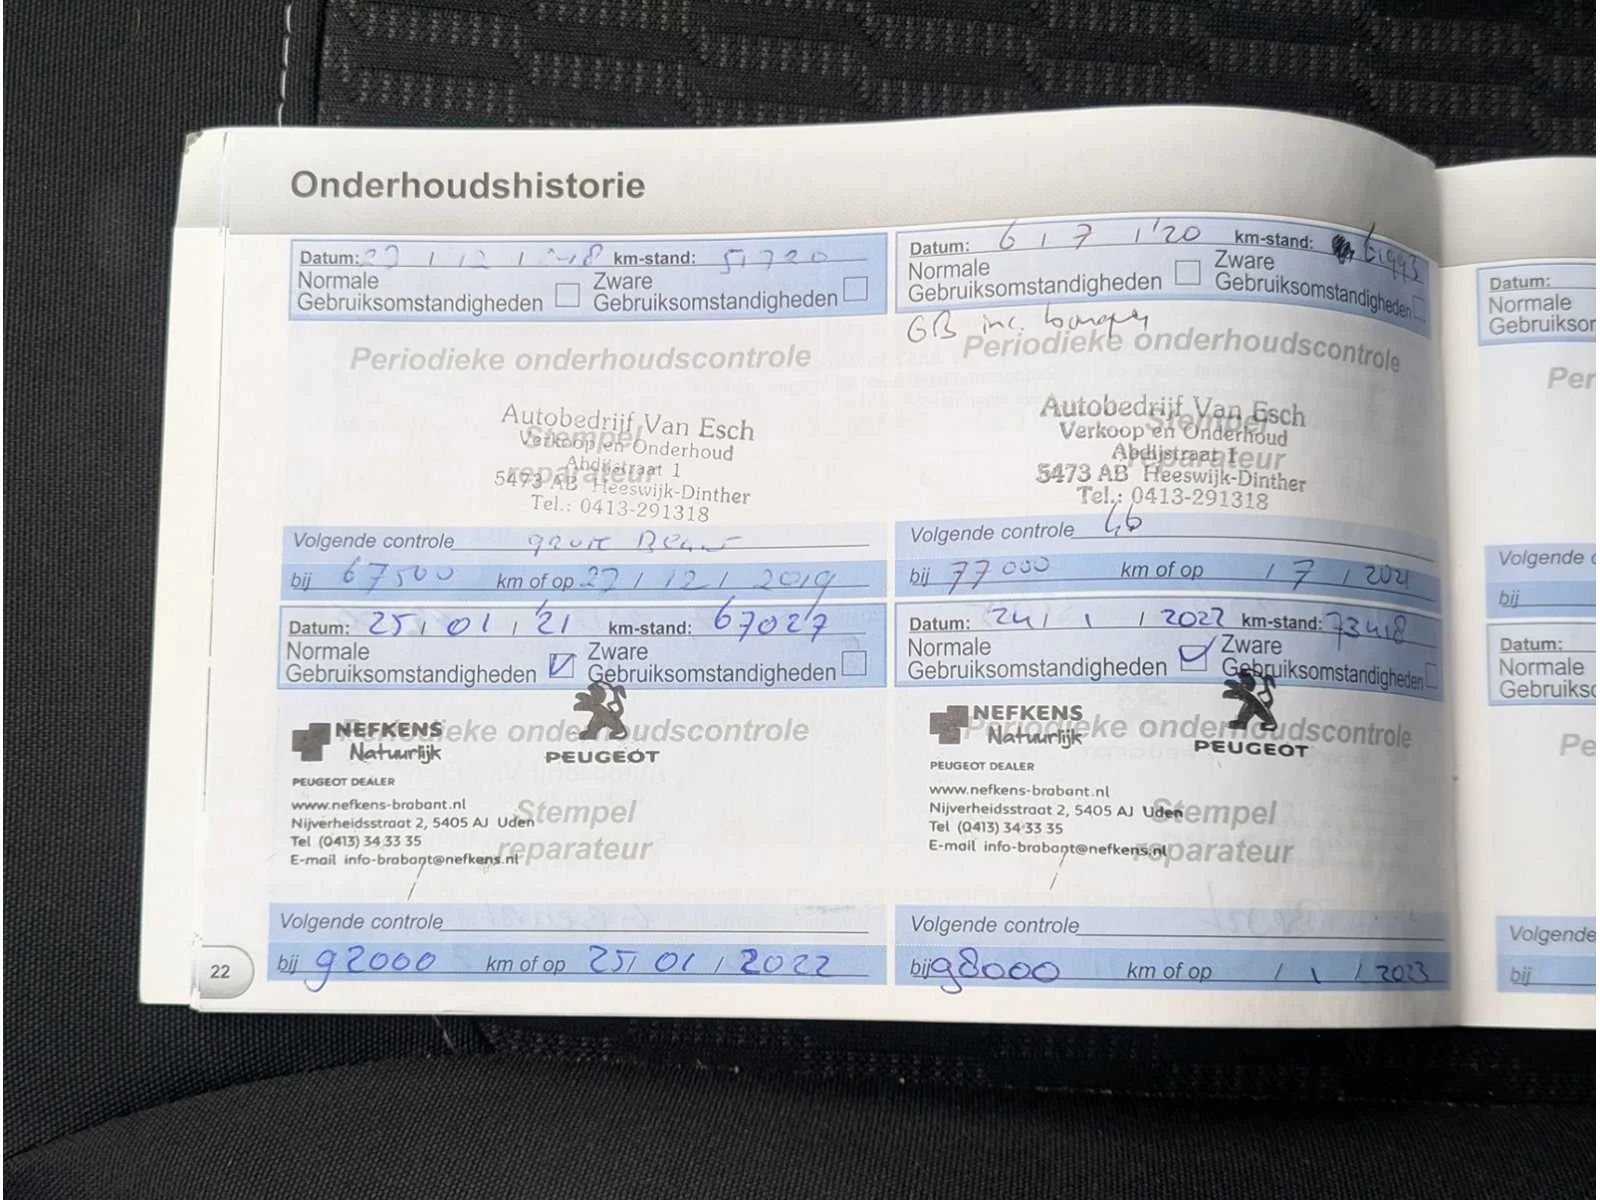 Onderhoudshistorie
Datum: 27 / 12 / 2018 km-stand: 51720
Normale Zware
Gebruiksomstandigheden Gebruiksomstandigheden
Periodieke onderhoudscontrole
Stempel
reparateur
Autobedrijf Van Esch
Verkoop en Onderhoud
Abdijstraat 1
5473 AB Heeswijk-Dinther
Tel.: 0413-291318
Volgende controle grote Beurt
bij 67500 km of op 27 / 12 / 2019
Datum: 6 / 7 / '20 km-stand: 61993
Normale Zware
Gebruiksomstandigheden Gebruiksomstandigheden
GB inc.
Periodieke onderhoudscontrole
Stempel
reparateur
Autobedrijf Van Esch
Verkoop en Onderhoud
Abdijstraat 1
5473 AB Heeswijk-Dinther
Tel.: 0413-291318
Volgende controle
bij 77000 km of op / 7 / 2021
Datum: 25 / 01 / '21 km-stand: 67027
Normale Zware
Gebruiksomstandigheden Gebruiksomstandigheden
Periodieke onderhoudscontrole
Stempel
reparateur
NEFKENS
Natuurlijk
PEUGEOT
PEUGEOT DEALER
www.nefkens-brabant.nl
Nijverheidsstraat 2, 5405 AJ Uden
Tel (0413) 34 33 35
E-mail info-brabant@nefkens.nl
Volgende controle
bij 92000 km of op 25 / 01 / 2022
Datum: 24 / 1 / 2022 km-stand: 73418
Normale Zware
Gebruiksomstandigheden Gebruiksomstandigheden
Periodieke onderhoudscontrole
Stempel
reparateur
NEFKENS
Natuurlijk
PEUGEOT
PEUGEOT DEALER
www.nefkens-brabant.nl
Nijverheidsstraat 2, 5405 AJ Uden
Tel (0413) 34 33 35
E-mail info-brabant@nefkens.nl
Volgende controle
bij 98000 km of op / 1 / 2023
22
Datum:
Normale
Gebruiksor
Per
Volgende c
bij
Datum:
Normale
Gebruiksc
Pe
Volgende
bij